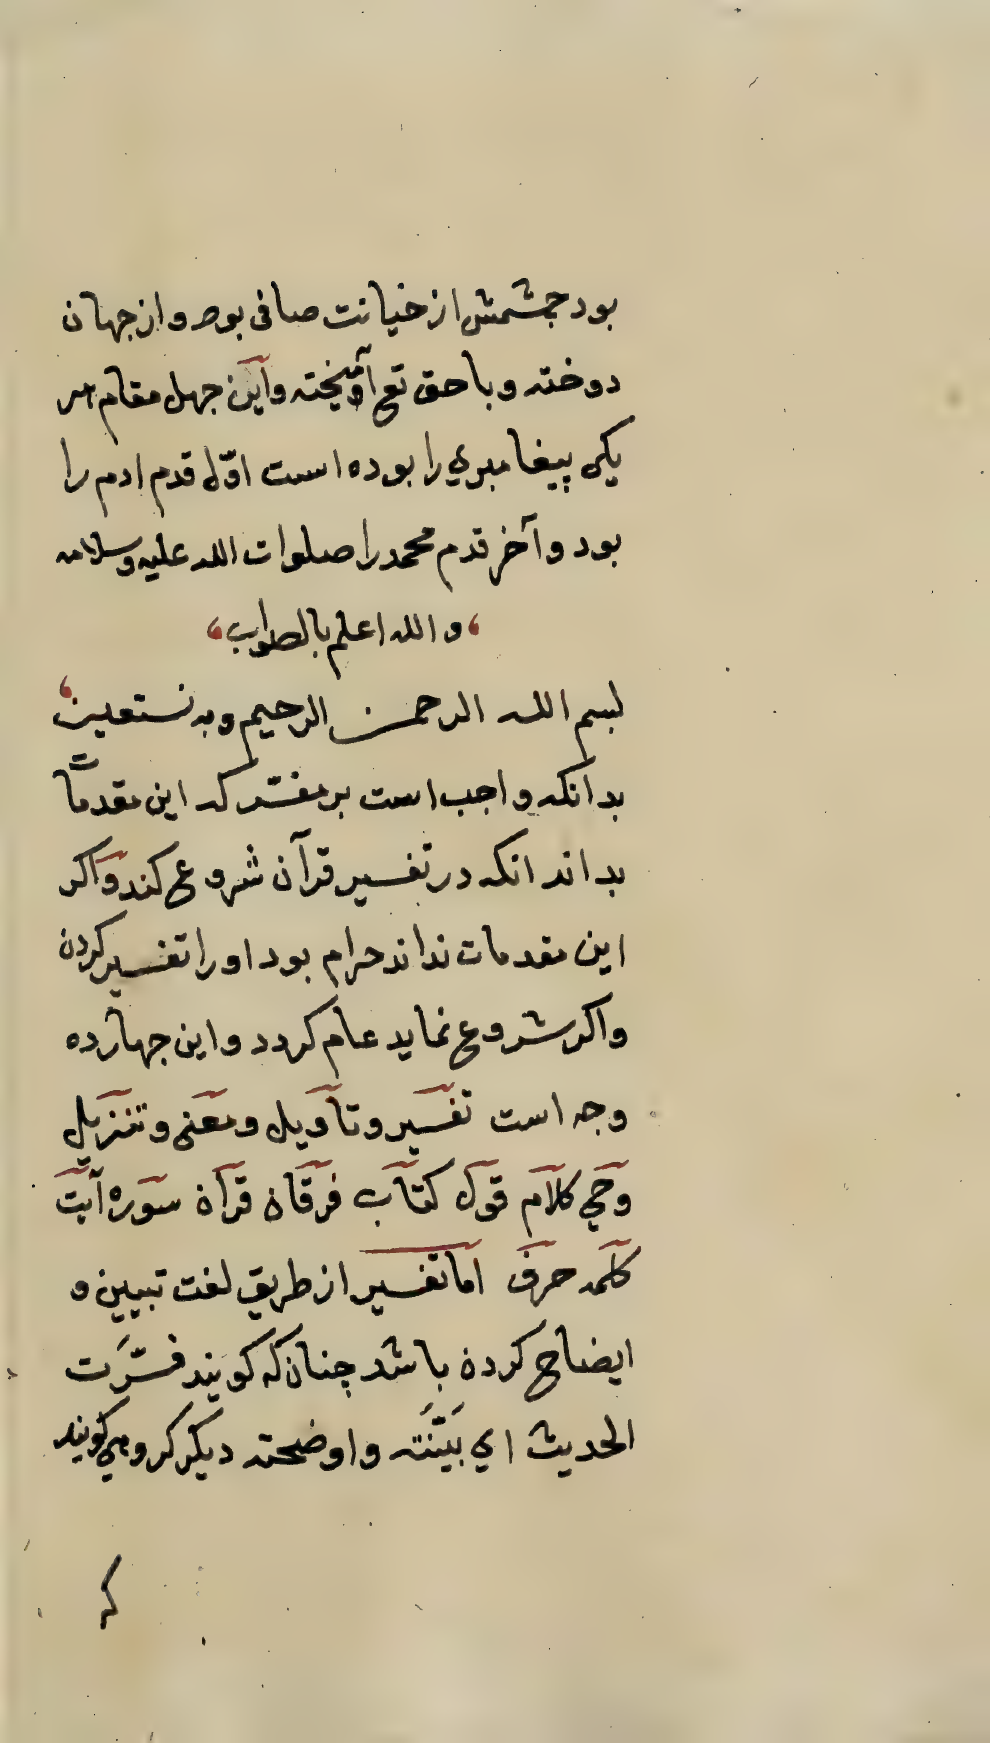 بود جشمش از خیانت صافی بود و از جهان
دوخته و با حق تع آویخته و این جهل مقام هر
یکی پیغامبري را بوده است اوّل قدم ادم را
بود و آخر قدم محمد را صلوات الله علیه وسلامه
والله اعلم بالصواب
بسم الله الرحمن الرحیم وبه نستعین
بدانکه واجب است بر مفسّر که این مقدمات
بداند انکه در تفسیر قرآن شروع کند واکر
این مقدمات نداند حرام بود او را تفسیر کردن
واکر شروع نماید عام کردد و این جهارده
وجه است تفسیر و تأویل و معنی و تنزیل
وحي کلام قول کتاب فرقان قرآن سوره آیت
کلمه حرف اما تفسیر از طریق لغت تبیین و
ایضاح کردن باشد چنان که کویند فسّرَت
الحدیث اي بَیّنَته و اوضحته دیکر کروهي کویند
که